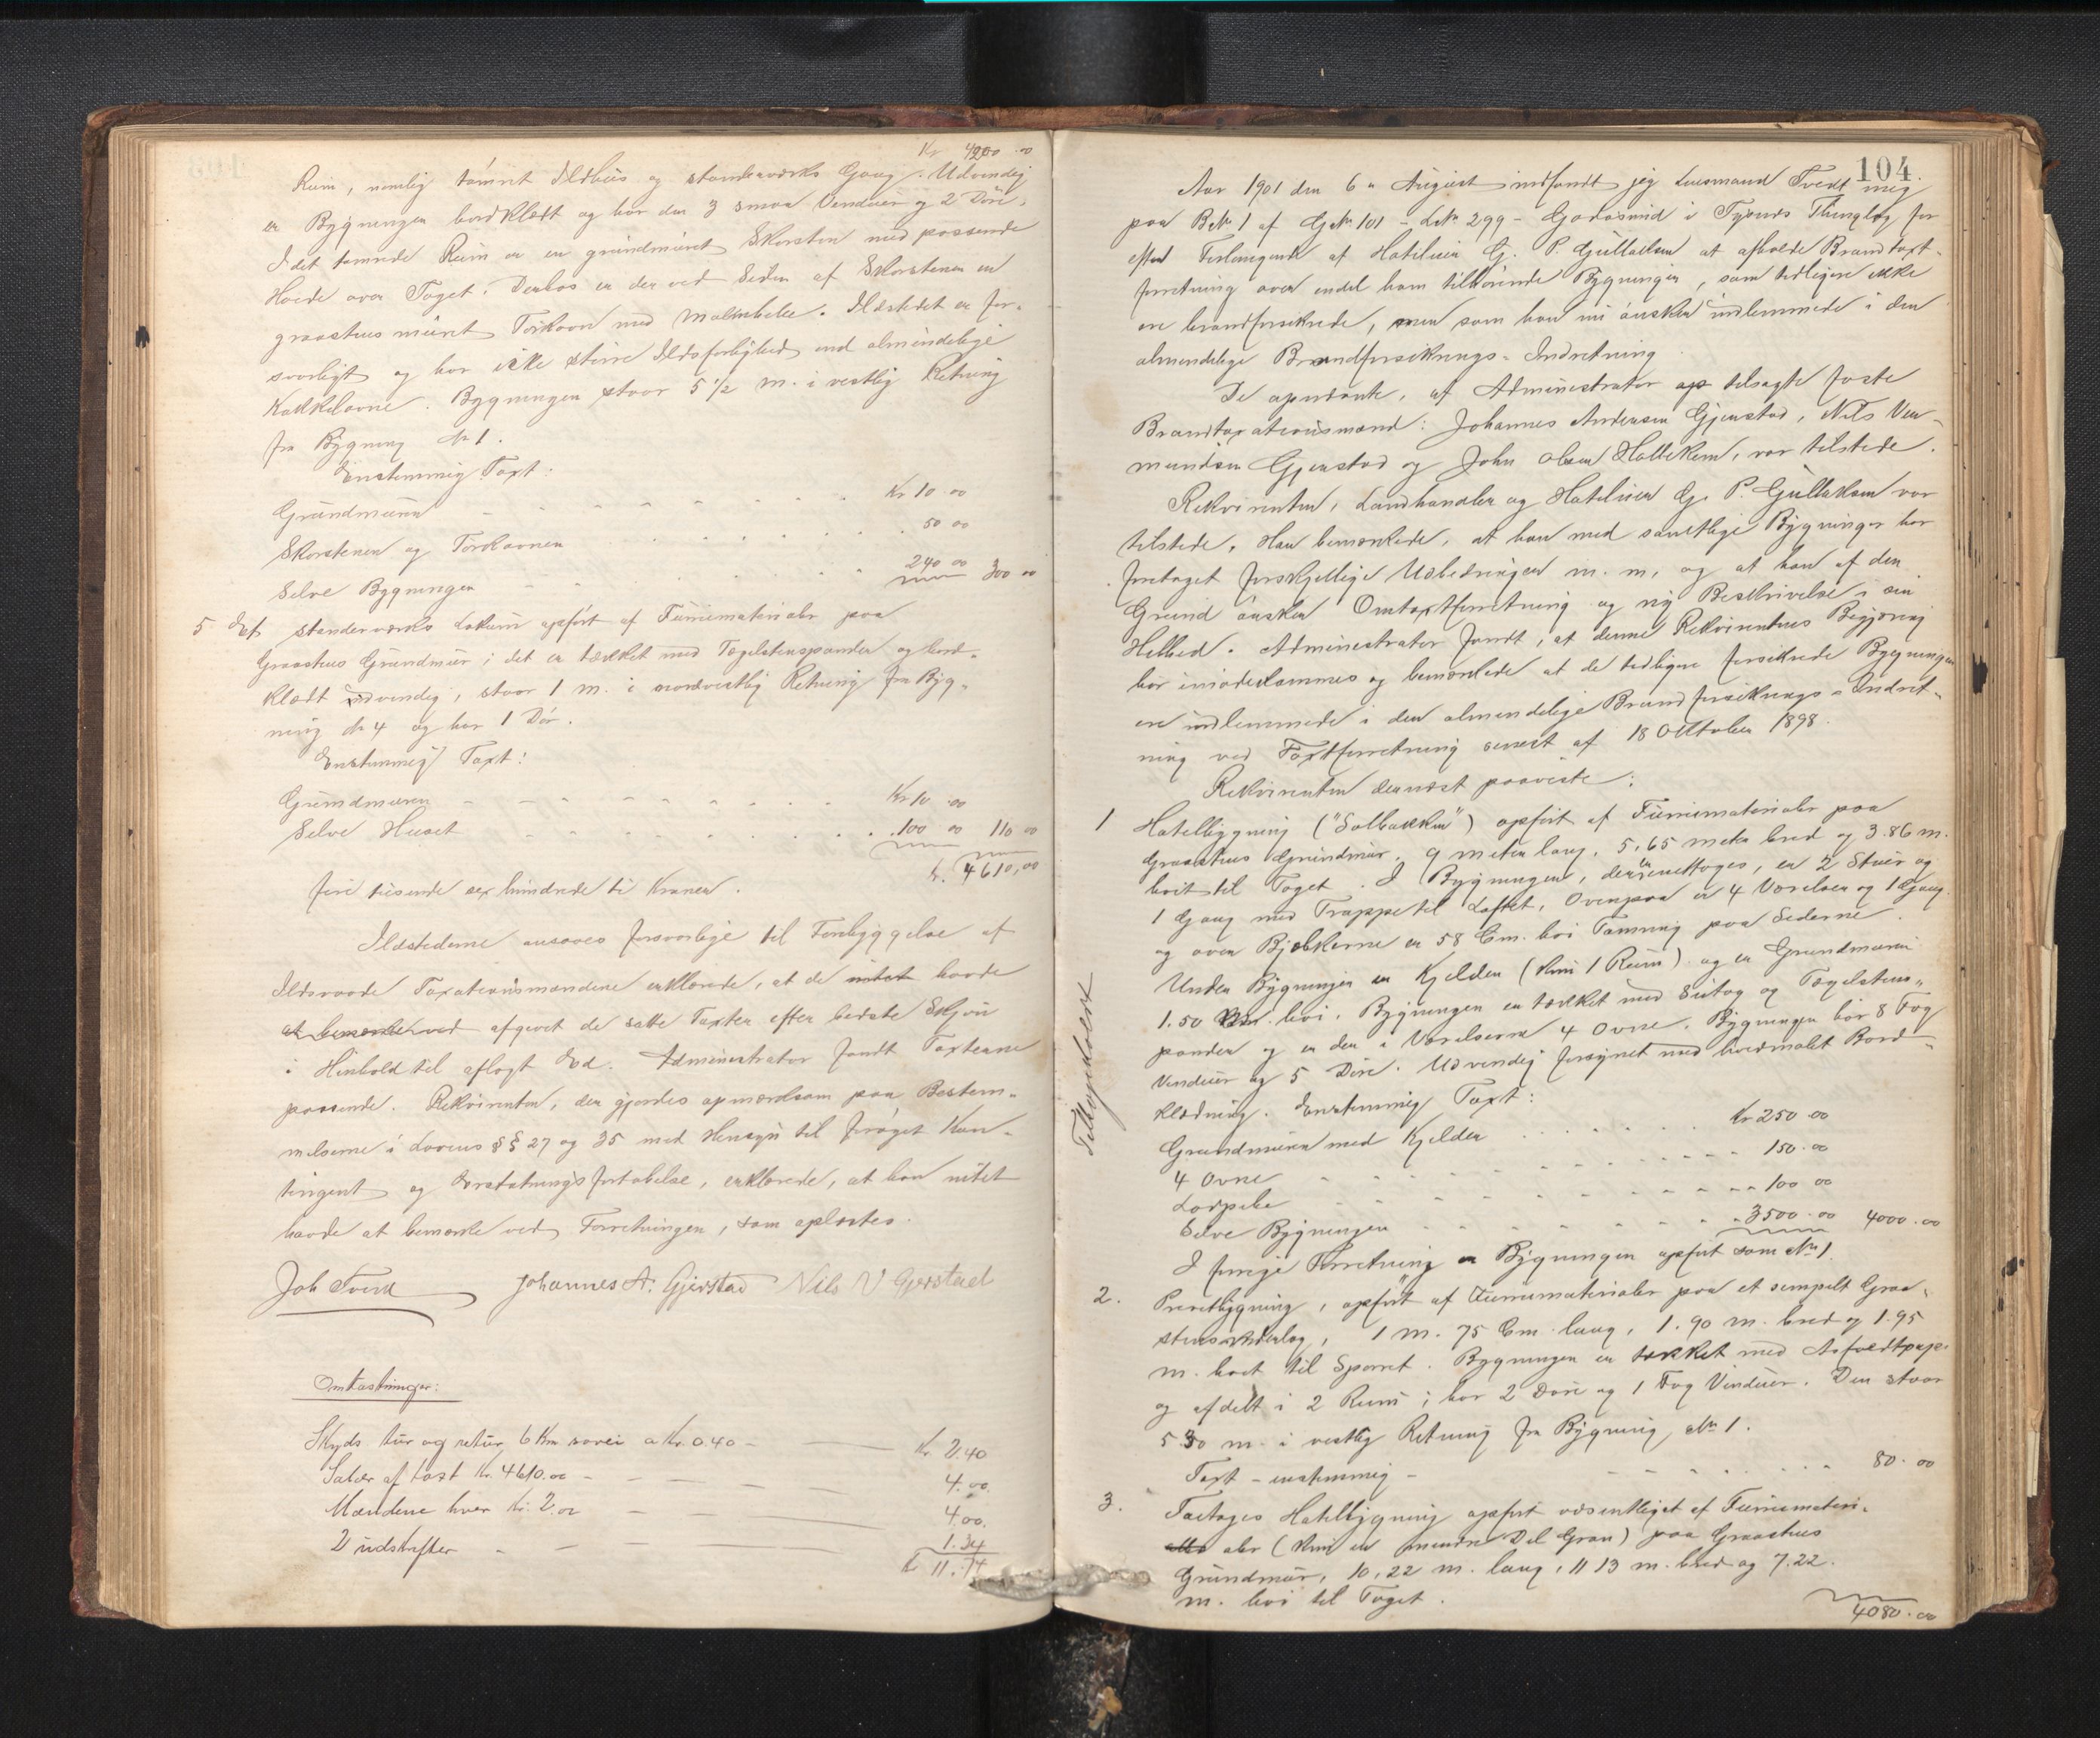 Kr 4200.00
Rum, nemlig tømret Ildhus og standerværks Gang. Udvendig
er Bygningen bordklædt og har den 3 smaa Vinduer og 2 Døre.
I det tømrede Rum er en grundmuret Skorsten med passende
Høide over Taget. Derhos er der ved Siden af Skorstenen en
graastens muret Torkovn med . Ildstedet er for-
svarligt og har ikke større Ildsfarlighed end almindelige
Kakkelovne. Bygningen staar 5 1/2 m. i vestlig Retning
fra Bygning No 1.
Enstemmig Taxt:
Grundmuren - - - - - Kr 10.00
Skorstenen og Torkovnen . . . . 50 00
Selve Bygningen - - - - 240 00 300 00
5 Et standerværks Lokum opført af Furumaterialer paa
Graastens Grundmur; det er tækket med Tegelstenspander og bord-
klædt udvendig, staar 1 m. i nordvestlig Retning fra Byg-
ning No 4 og har 1 Dør.
Enstemmig Taxt:
Grundmuren - - - - Kr 10.00
Selve Huset - - - - 100 00 110 00
Kr. 4610,00
fire tusende sex hundrede ti Kroner.
Ildstederne ansaaes forsvarlige til Forebyggelse af
Ildsvaade Taxationsmændene erklærede, at de intet havde
at bemærke ved afgivet de satte Taxter efter bedste Skjøn
i Henhold til aflagt Ed. Administrator fandt Taxterne
passende. Rekvirenten, der gjordes opmærksom paa Bestem-
melserne i Lovens §§ 27 og 35 med Hensyn til forøget Kon-
tingent og Erstatningsfortabelse, erklærede, at han intet
havde at bemærke ved Forretningen, som oplæstes.
Joh Tvedt Johannes A. Gjerstad Nils V Gjerstad
Omkostninger:
Skyds tur og retur 6 Km søvei a Kr. 0.40 - Kr 2.40
Salær af taxt Kr. 4610.00 - - - 4.00.
Mændene hver Kr. 2.00 - - 4.00.
2 udskrifter - - - 1.34
Kr 11.74
104.
Aar 1901 den 6te August indfandt jeg Lensmand Tvedt mig
paa BNo 1 af GNo 101 - LNo 299 - Godøsund i Tysnes Thinglag for
efter Forlangende af Hotelier G. P. Gullaksen at afholde Brandtaxt-
forretning over endel ham tilhørende Bygninger, som tidligere ikke
ere brandforsikrede, men som han nu ønsker indlemmede i den
almindelige Brandforsikrings-Indretning
De opnævnte, af Administrator op tilsagte faste
Brandtaxationsmænd: Johannes Andersen Gjerstad, Nils Vem-
mundsen Gjerstad og John Olsen Hollekim, var tilstede.
Rekvirenten, Landhandler og Hotelier G. P. Gullaksen var
tilstede. Han bemærkede, at han med samtlige Bygninger har
foretaget forskjellige Udbedringer m. m. og at han af den
Grund ønsker Omtaxtforretning og ny Beskrivelse i sin
Helhed. Administrator fandt, at denne Rekvirentens Begjæring
bør imødekommes og bemærkede at de tidligere forsikrede Bygninger
ere indlemmede i den almindelige Brandforsikrings-Indret-
ning ved Taxtforretning senest af 18 Oktober 1898.
Rekvirenten dernæst paaviste:
1 Hotelbygning ("Solbakken") opført af Furumaterialer paa
Graastens Grundmur. 9 meter lang, 5,65 meter bred og 3.86 m.
høit til Taget. I Bygningen, der er enetages, er 2 Stuer og
1 Gang med Trappe til Loftet, Ovenpaa er 4 Værelser og 1 Gang
og over Bjelkerne er 58 Cm. høi Tømring paa Siderne.
Under Bygningen er Kjelder (kun 1 Rum) og er Grundmuren
1.50 m. høi. Bygningen er tækket med Sutag og Tegelstens-
pander og er der i Værelserne 4 Ovne. Bygningen har 8 Fag
Vinduer og 5 Døre. Udvendig forsynet med hvidmalet Bord-
klædning. Enstemmig Taxt:
Grundmuren med Kjelder . . . . Kr 250.00
4 Ovne - - - - 150.00
- - - - 100 00
Selve Bygningen - - - 3500.00 4000.00
I forrige Forretning er Bygningen opført som No 1.
2. Privetbygning, opført af Furumaterialer paa et simpelt Graa-
stensunderlag, 1 m. 75 Cm lang, 1.90 m. bred og 1.95
m. høit til Sparret. Bygningen er tækket med Asfaltpap
og afdelt i 2 Rum; har 2 Døre og 1 Fag Vinduer. Den staar
5.30 m. i vestlig Retning fra Bygning No 1.
Taxt - enstemmig - - - - 80.00
3. Toetages Hotelbygning opført væsentligst af Furumateri-
aler (kun en mindre Del Gran) paa Graastens
Grundmur, 10,22 m. lang, 11 13 m. bred og 7.22
m. høi til Taget.
4080.00